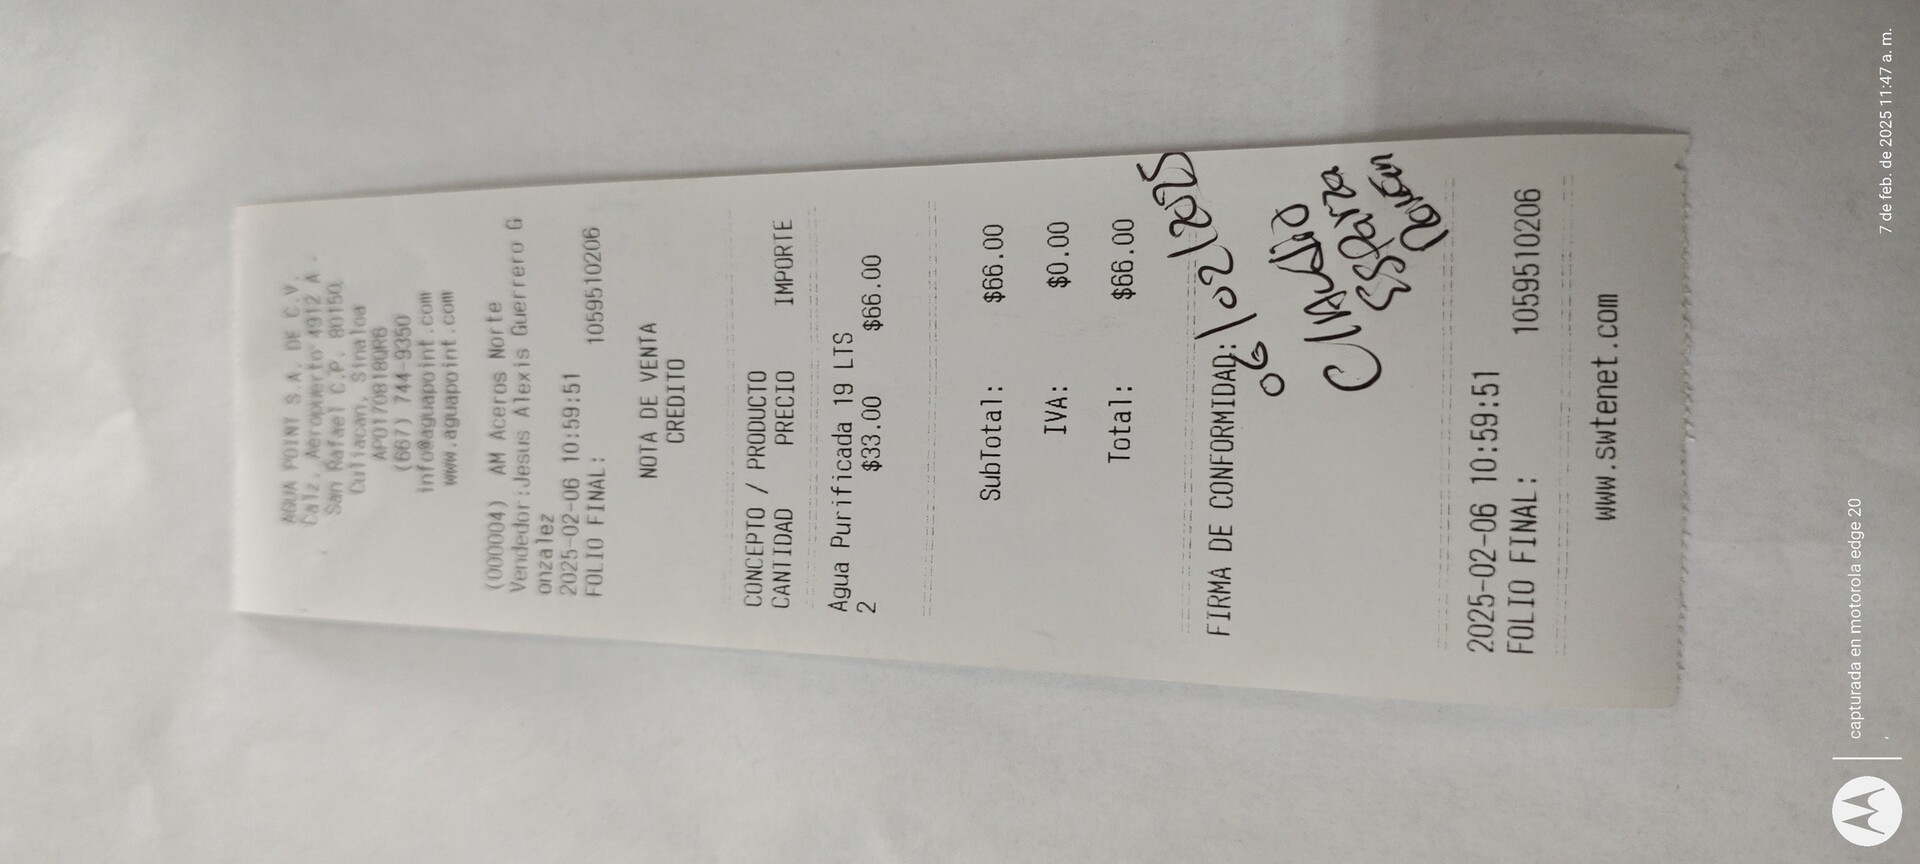 AGUA POINT S.A. DE C.V.
Calz. Aeropuerto 4912 A.
San Rafael C.P. 80150
Culiacan, Sinaloa
(667) 744-9350
info@aguapoint.com
www.aguapoint.com
(000004) AM Aceros Norte
Vendedor:Jesus Alexis Guerrero G
onzalez
2025-02-06 10:59:51
FOLIO FINAL: 1059510206
NOTA DE VENTA
CREDITO
CONCEPTO / PRODUCTO
CANTIDAD PRECIO IMPORTE
Agua Purificada 19 LTS
2 $33.00 $66.00
SubTotal: $66.00
IVA: $0.00
Total: $66.00
FIRMA DE CONFORMIDAD:
06/02/2025
Esparza
2025-02-06 10:59:51
FOLIO FINAL: 1059510206
www.swtenet.com
capturada en motorola edge 20
7 de feb. de 2025 11:47 a. m.